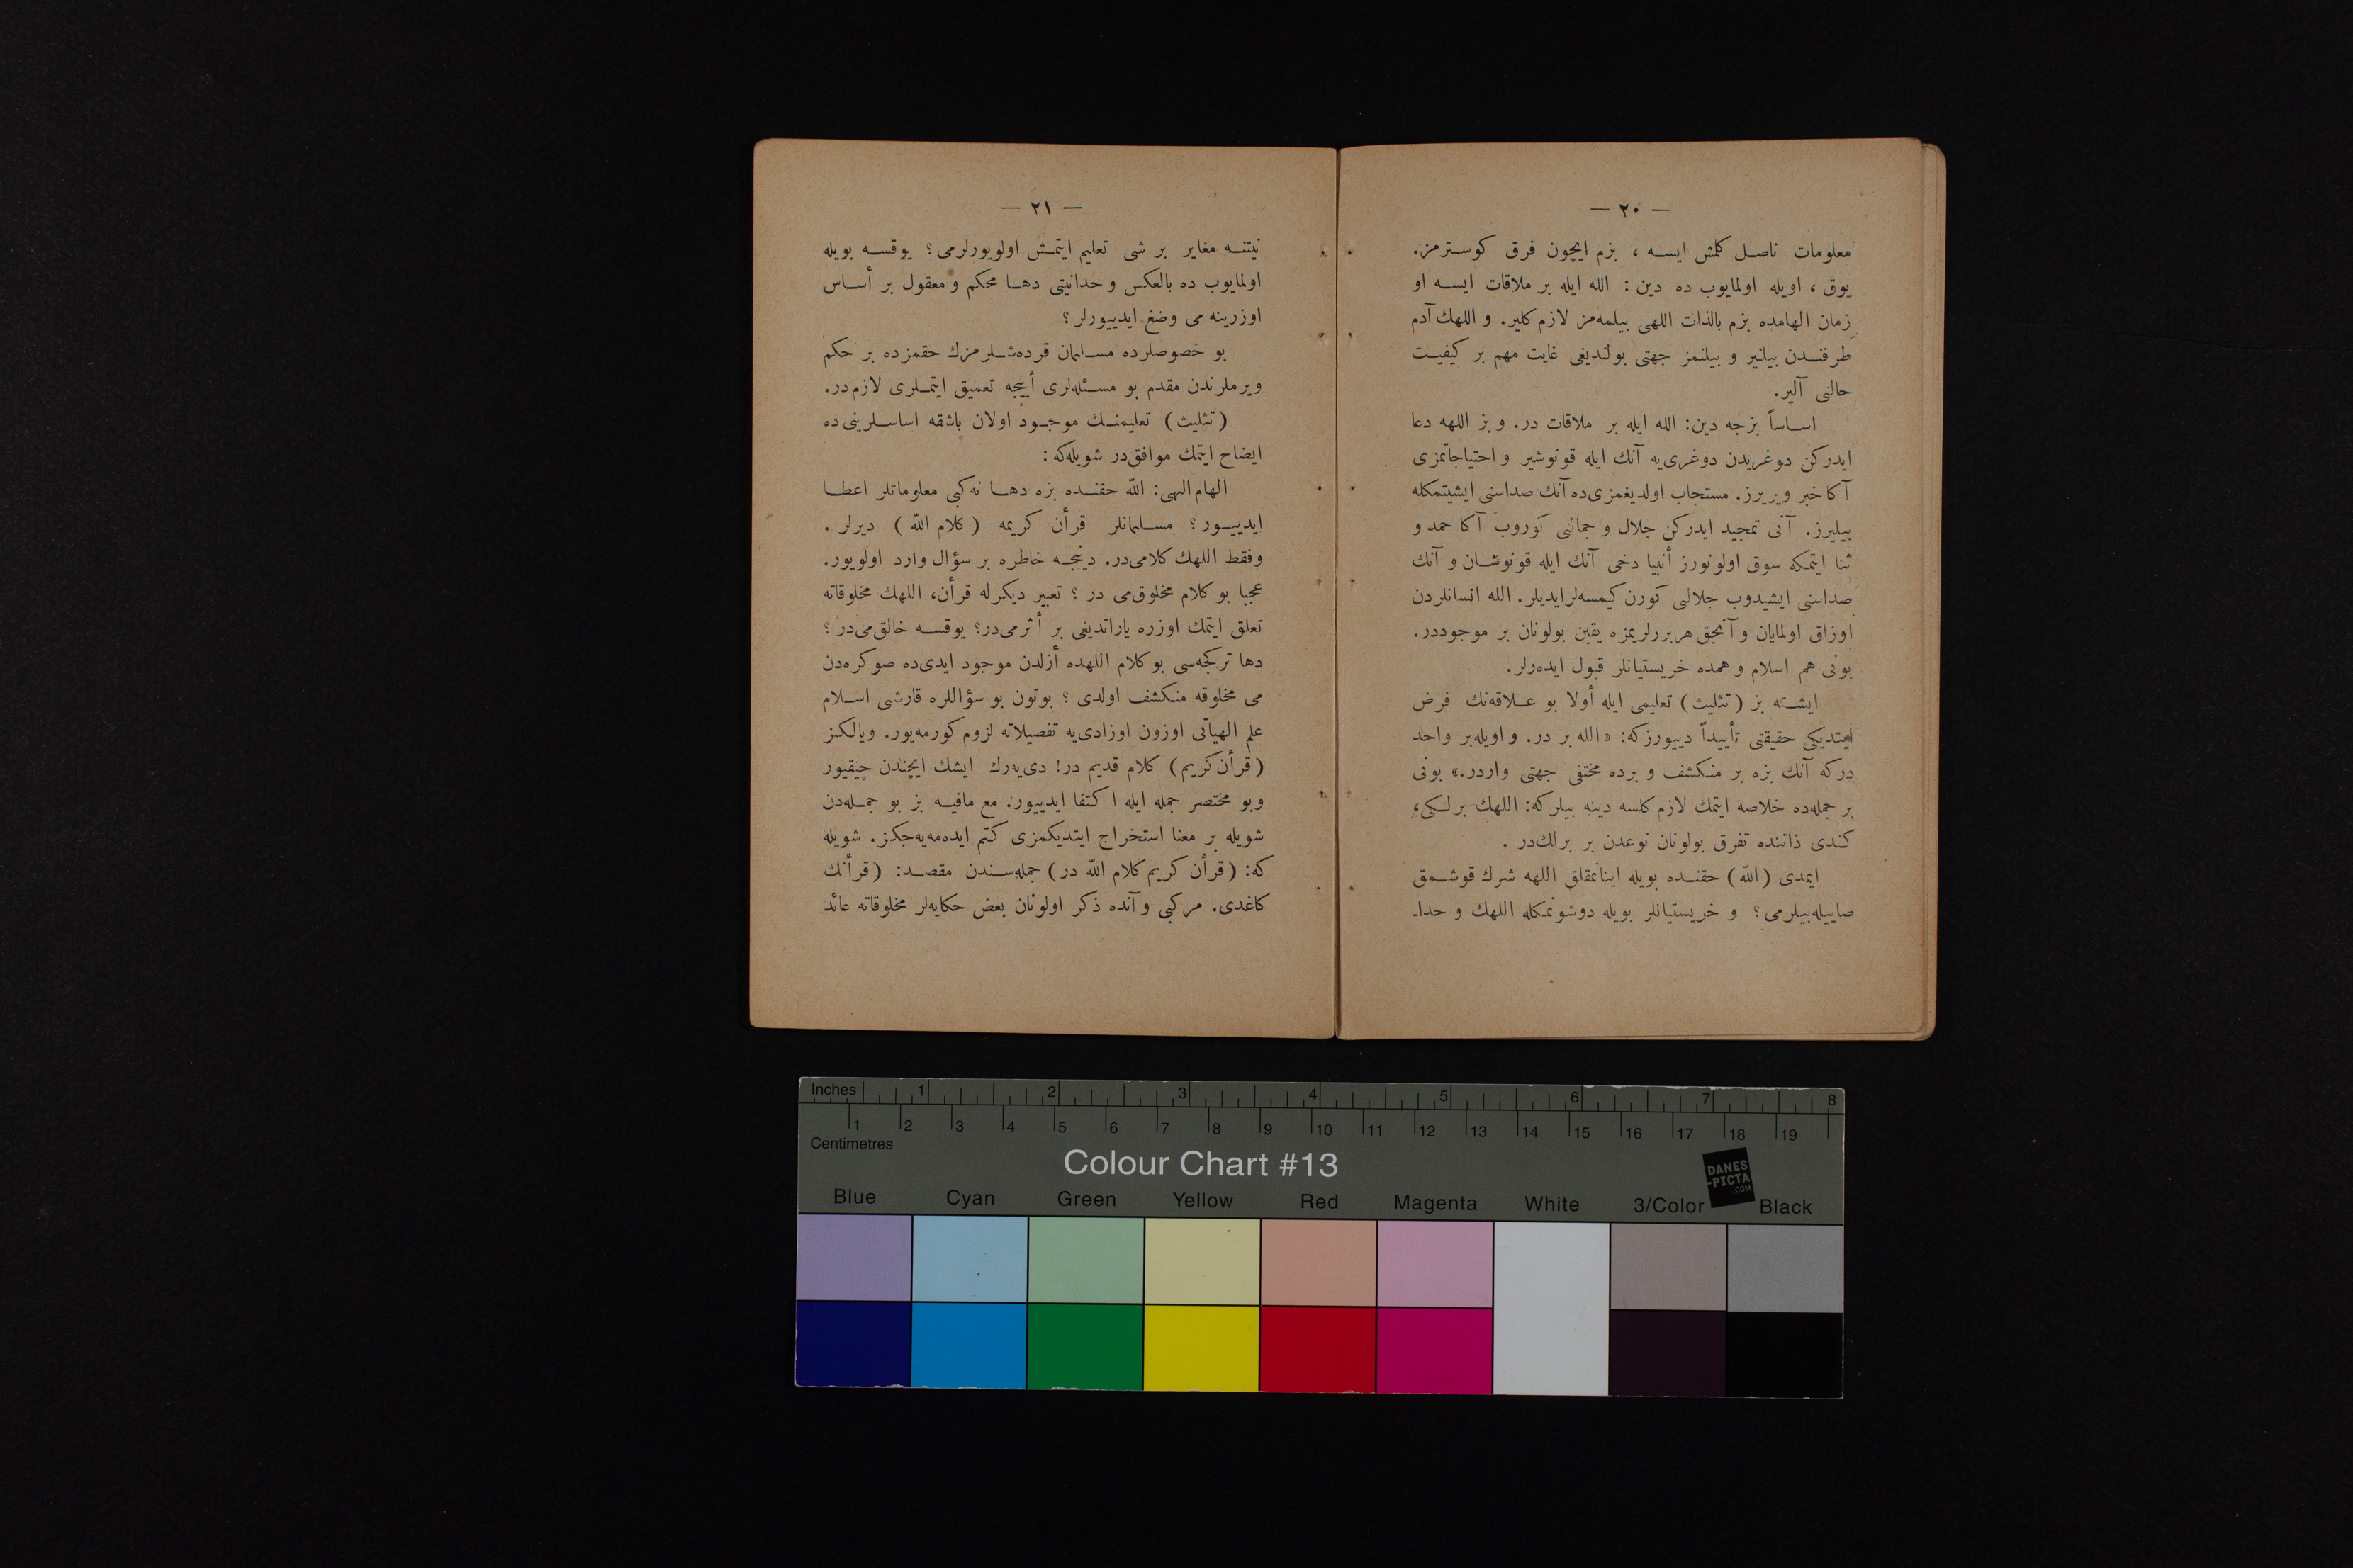 — ٢٠ —
معلومات ناصل كلمش ايسه ، بزم ايچون فرق كوسترمز.
يوق ، اويله اولمايوب ده دين : الله ايله بر ملاقات ايسه او
زمان الهامده بزم بالذات اللهى بيلمه‌مز لازم كلير. و اللهك آدم
طرفندن بيلنير و بيلنمز جهتى بولنديغى غايت مهم بر كيفيت
حالنى آلير.
اساساً بزجه دين: الله ايله بر ملاقات در. و بز اللهه دعا
ايدركن دوغريدن دوغرى‌يه آنك ايله قونوشير و احتياجاتمزى
آكا خبر ويريرز. مستجاب اولديغمزى‌ده آنك صداسنى ايشيتمكله
بيليرز. آنى تمجيد ايدركن جلال و جمالنى كوروب آكا حمد و
ثنا ايتمكه سوق اولونورز أنبيا دخى آنك ايله قونوشان و آنك
صداسنى ايشيدوب جلالنى كورن كيمسه‌لر ايديلر. الله انسانلردن
اوزاق اولمايان و آنجق هر بررلريمزه يقين بولونان بر موجوددر.
بونى هم اسلام و همده خريستيانلر قبول ايده‌رلر.
ايشته بز (تثليث) تعليمى ايله أولا بو علاقه‌نك فرض
ايتديكى حقيقتى تأييداً دييورزكه: «الله بر در. و اويله‌بر واحد
دركه آنك بزه بر منكشف و برده مختفى جهتى واردر.» بونى
بر جمله‌ده خلاصه ايتمك لازم كلسه دينه بيلركه: اللهك برلكى،
كندى ذاتنده تفرق بولونان نوعدن بر برلك‌در .
ايمدى (الله) حقنده بويله اينانمقلق اللهه شرك قوشمق
صاييله‌بيلرمى؟ و خريستيانلر بويله دوشونمكله اللهك و حدا-
— ٢١ —
نيتنه مغاير بر شى تعليم ايتمش اولويورلرمى؟ يوقسه بويله
اولمايوب ده بالعكس وحدانيتى دها محكم و معقول بر أساس
اوزرينه مى وضع ايدييورلر؟
بو خصوصلرده مسلمان قرده‌شلرمزك حقمزده بر حكم
ويرملرندن مقدم بو مسئله‌لرى أييجه تعميق ايتملرى لازم‌در.
(تثليث) تعليمنك موجود اولان باشقه اساسلرينى‌ده
ايضاح ايتمك موافق‌در شويله‌كه:
الهام الهى: الله حقنده بزه دها نه كبى معلوماتلر اعطا
ايدييور؟ مسلمانلر قرأن كريمه (كلام الله) ديرلر .
وفقط اللهك كلامى‌در. دينجه خاطره بر سؤال وارد اولويور.
عجبا بو كلام مخلوق‌مى در ؟ تعبير ديكرله قرأن، اللهك مخلوقاته
تعلق ايتمك اوزره ياراتديغى بر أثرمى‌در؟ يوقسه خالق‌مى‌در؟
دها تركجه‌سى بو كلام اللهده أزلدن موجود ايدى‌ده صوكره‌دن
مى مخلوقه منكشف اولدى ؟ بوتون بو سؤاللره قارشى اسلام
علم الهياتى اوزون اوزادى‌يه تفصيلاته لزوم كورمه‌يور. ويالكز
(قرأن كريم) كلام قديم در! دى‌يه‌رك ايشك ايچندن چيقيور
وبو مختصر جمله ايله اكتفا ايدييور. مع مافيه بز بو جمله‌دن
شويله بر معنا استخراج ايتديكمزى كتم ايده‌مه‌يه‌جكز. شويله
كه: (قرأن كريم كلام الله در) جمله‌سندن مقصد: (قرأنك
كاغدى. مركبى و آنده ذكر اولونان بعض حكايه‌لر مخلوقاته عائد
Inches 1 2 3 4 5 6 7 8
1 2 3 4 5 6 7 8 9 10 11 12 13 14 15 16 17 18 19
Centimetres
Colour Chart #13
DANES
-PICTA
.COM
Blue Cyan Green Yellow Red Magenta White 3/Color Black